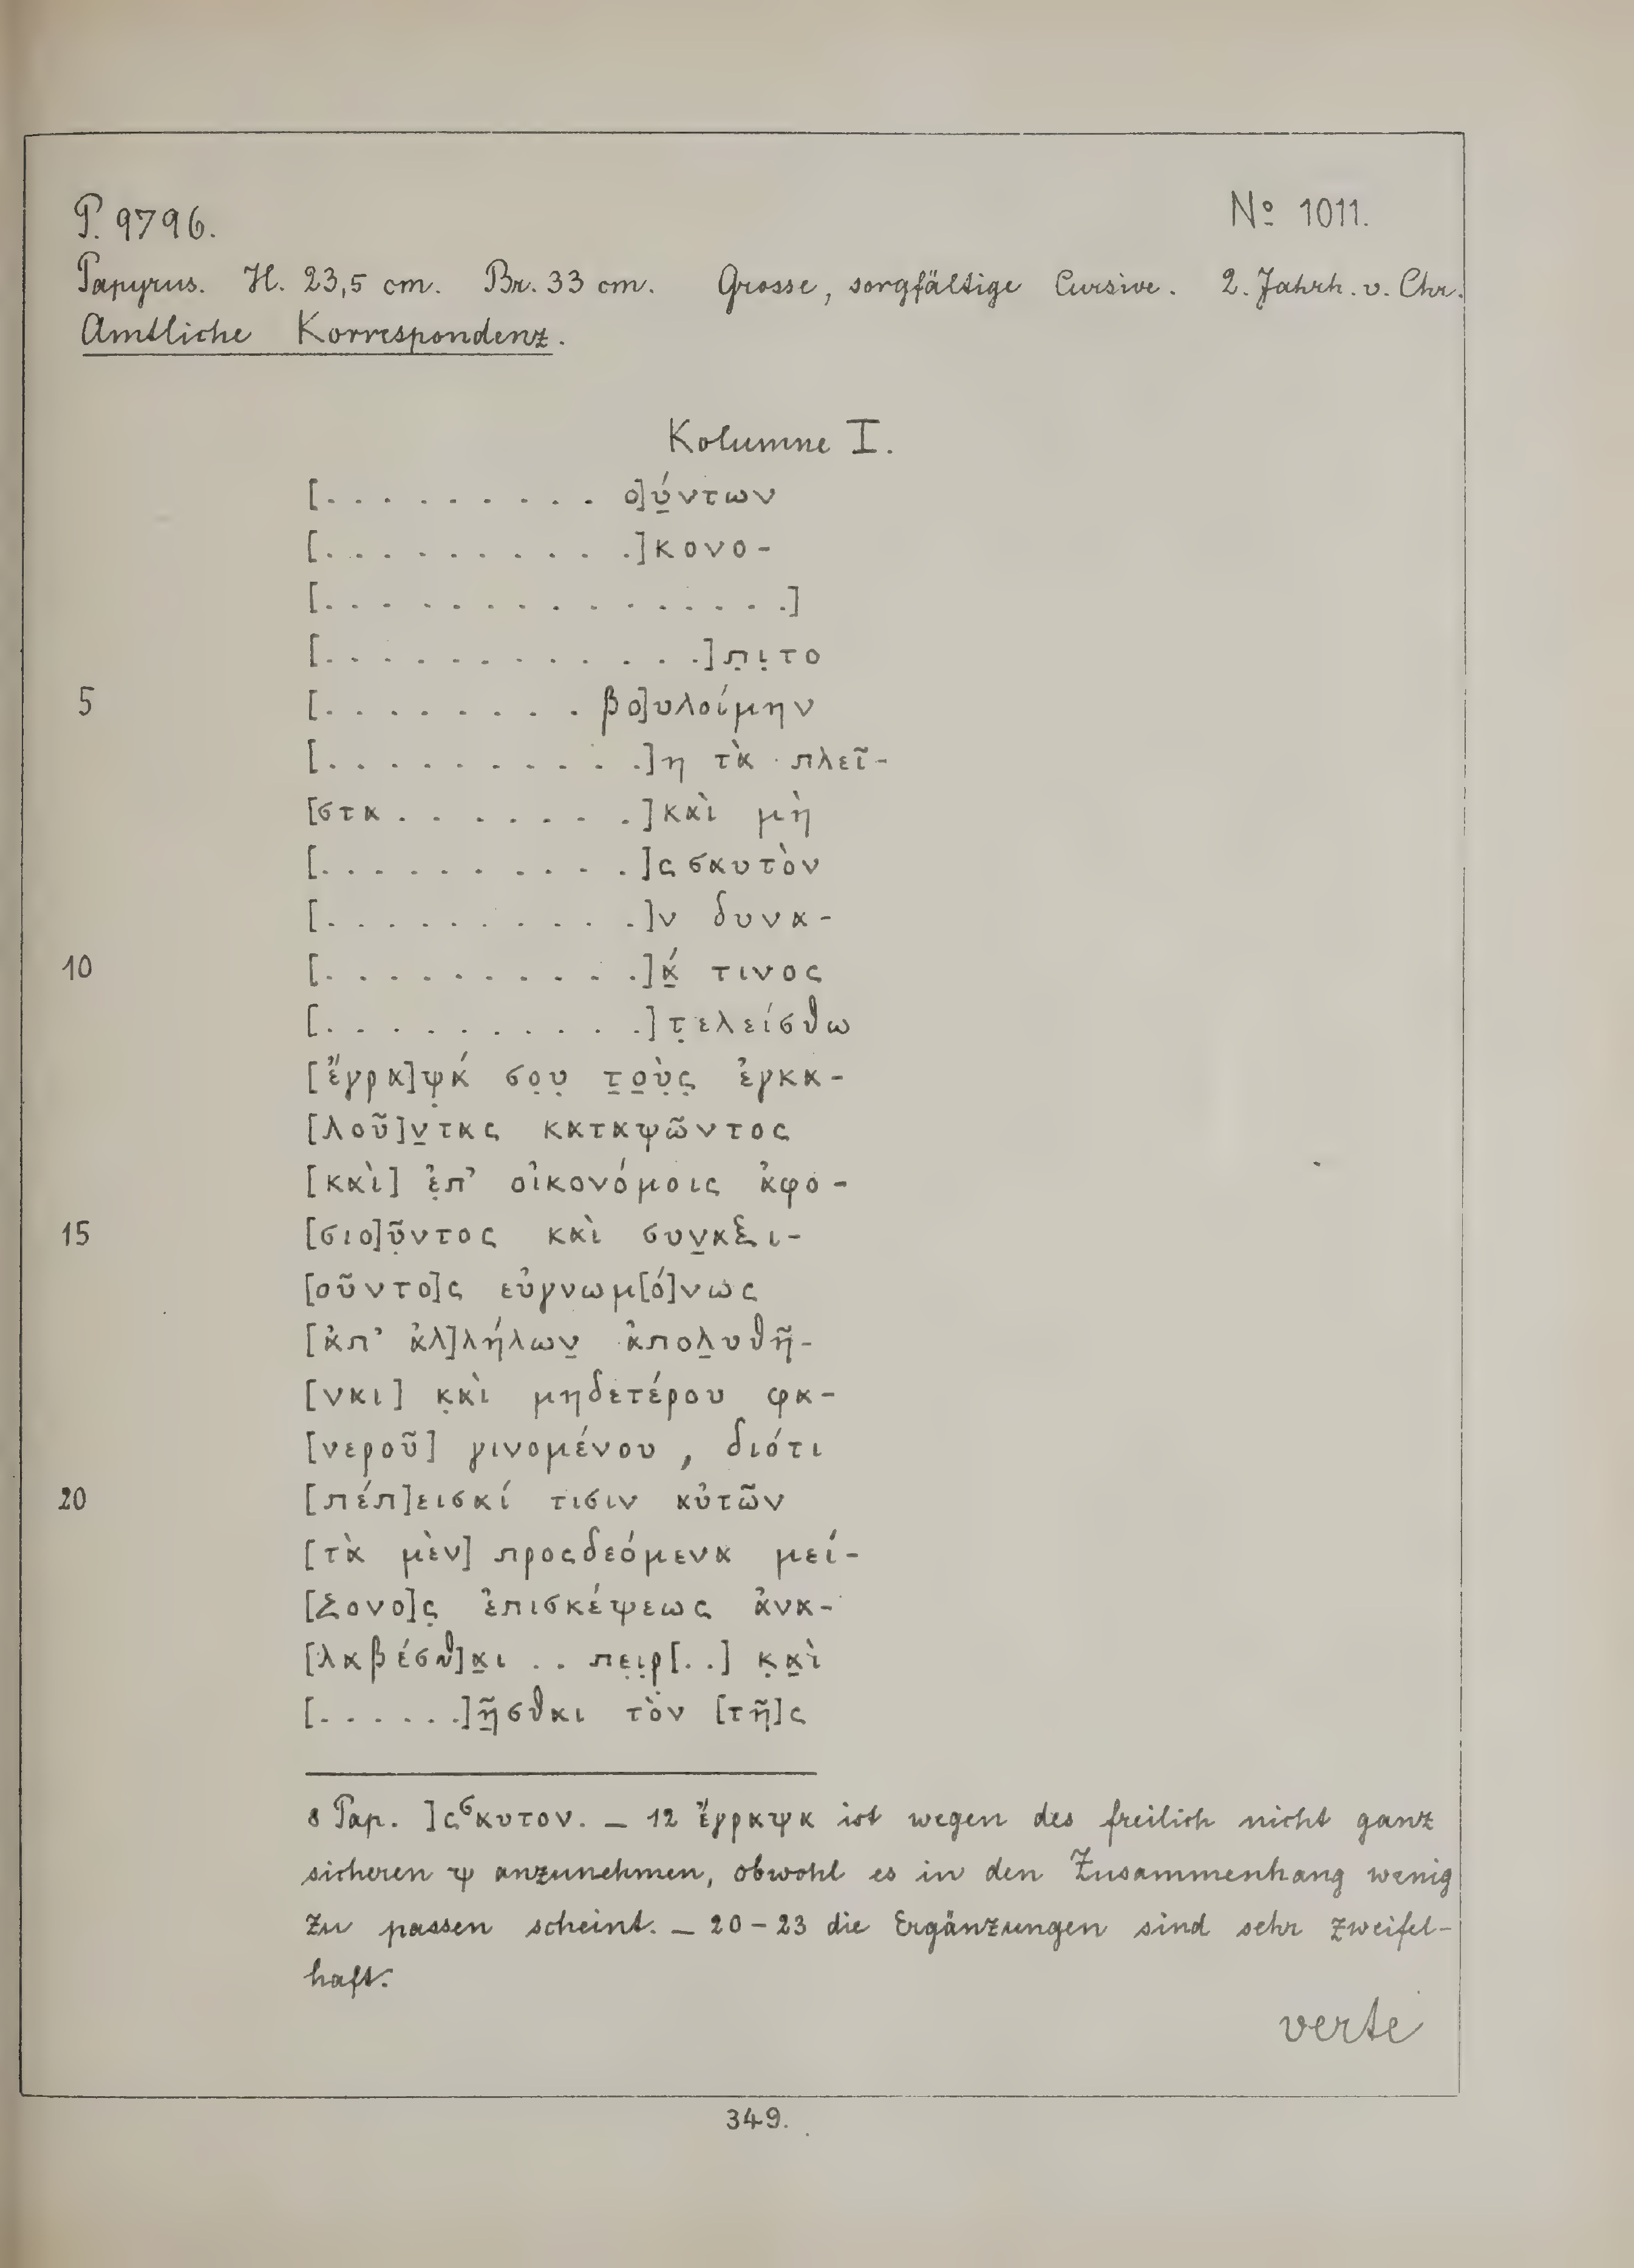 P. 9796. Nº 1011.
Papyrus. H. 23,5 cm. Br. 33 cm. Grosse, sorgfältige Cursive. 2. Jahrh. v. Chr.
Amtliche Korrespondenz.
Kolumne I.
[. . . . . . . . . ο]ύ̣ντων
[. . . . . . . . . . .]κονο-
[. . . . . . . . . . . . . . . .]
[. . . . . . . . . . . . .]π̣ι̣το
5 [. . . . . . . . . βο]υλοίμην
[. . . . . . . . . . .]η τὰ πλεῖ-
[στα . . . . . . . .]καὶ μὴ
[. . . . . . . . . . .]ς σαυτὸν
[. . . . . . . . . . .]ν δυνα-
10 [. . . . . . . . . . .]ά̣ τινος
[. . . . . . . . . . .]τ̣ελείσθω
[ἔγρα]ψ̣ά σο̣υ̣ τ̣ο̣ὺ̣ς̣ ἐγκα-
[λοῦ]ν̣τας καταψῶντος
[καὶ] ἐ̣π’ οἰκονόμοις ἀφο-
15 [σιο]ῦ̣ντος καὶ συν̣αξι-
[οῦντο]ς εὐγνωμ[ό]νως
[ἀπ’ ἀλ]λήλων̣ ἀπολ̣υθῆ-
[ναι] κ̣αὶ μηδετέρου φα-
[νεροῦ] γινομένου, διότι
20 [πέπ]εισαί τισιν αὐτῶν
[τὰ μὲν] προςδεόμενα μεί-
[ζονο]ς̣ ἐπισκέψεως ἀνα-
[λαβέσθ]α̣ι . . πε̣ι̣ρ[. .] κ̣α̣ὶ
[. . . . . .]ῆ̣σθαι τὸν [τῆ]ς
8 Pap. ]ςσαυτον. — 12 ἔγραψα ist wegen des freilich nicht ganz
sicheren ψ anzunehmen, obwohl es in den Zusammenhang wenig
zu passen scheint. — 20-23 die Ergänzungen sind sehr zweifel-
haft.
verte
349.